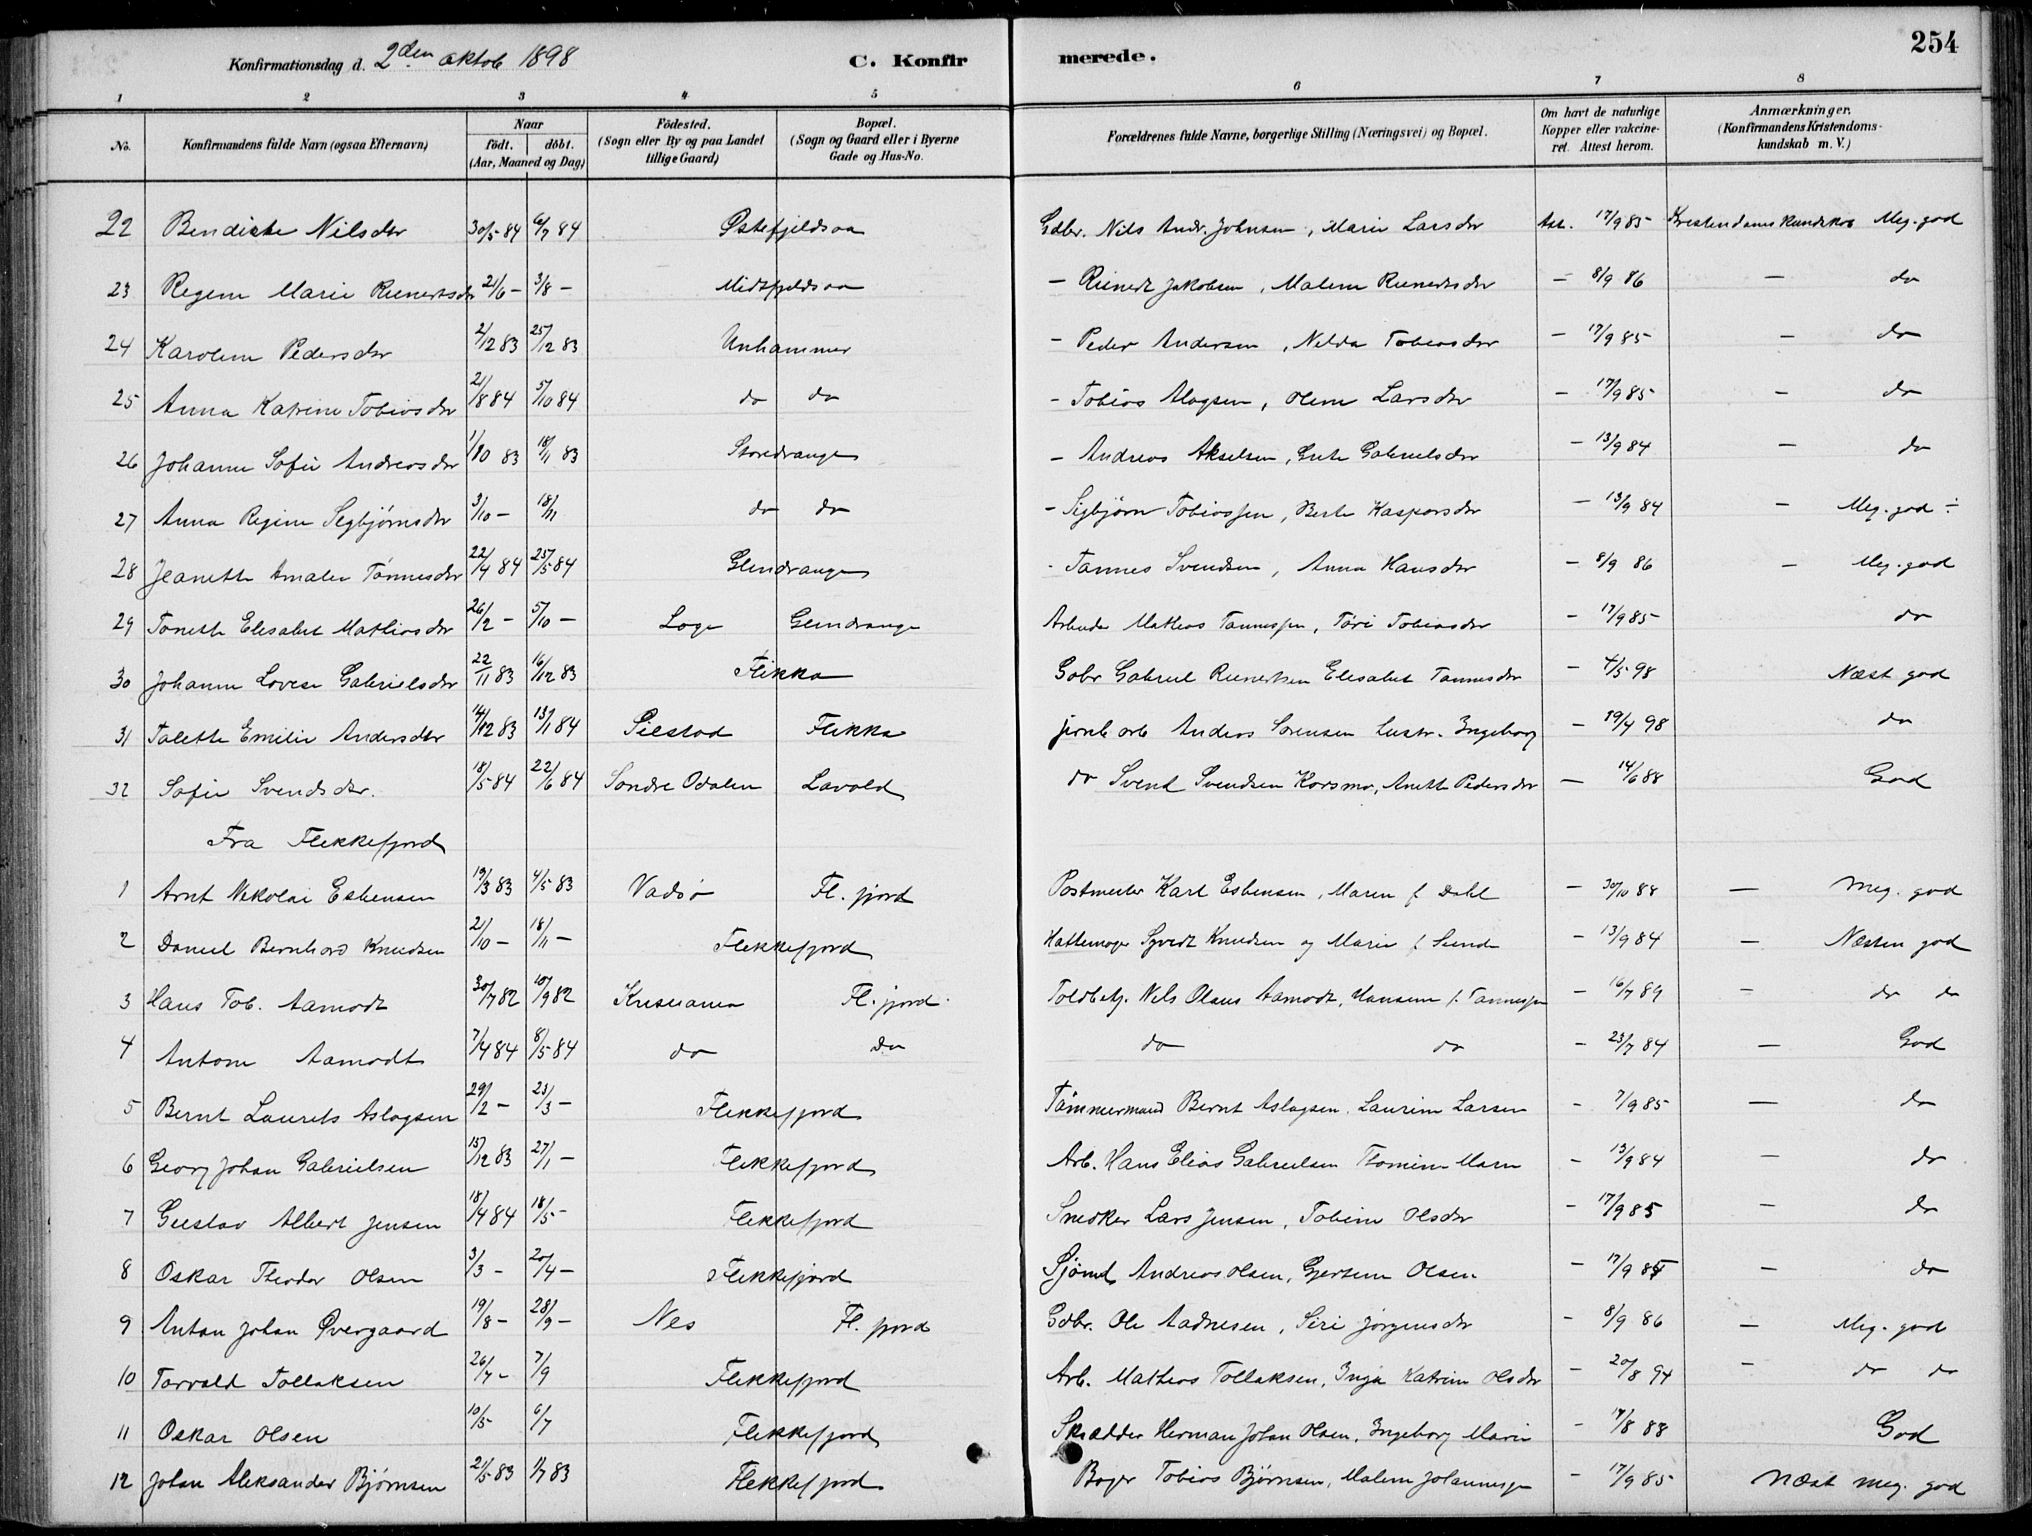 Konfirmationsdag d. 2den oktob 1898 C. Konfirmerede. 254
1 2 3 4 5 6 7 8
No. Konfirmandens fulde Navn (ogsaa Efternavn) Naar födt. döbt. (Aar, Maaned og Dag) Födested. (Sogn eller By og paa Landet tillige Gaard) Bopæl. (Sogn og Gaard eller i Byerne Gade og Hus-No. Forældrenes fulde Navne, borgerlige Stilling (Næringsvei) og Bopæl. Om havt de naturlige Kopper eller vakcineret. Attest herom. Anmærkninger. (Konfirmandens Kristendomskundskab m. V.)
22 Bendikte Nilsdtr 30/5 84 6/7 84 Østefjeldsaa Gdbr. Nils Andr. Johnsen, Marie Larsdtr Att. 17/9 85 Kristendomskundskab Meg. god
23 Regine Marie Reinertsdtr 2/6 - 3/8 - Midtfjeldsaa - Reinert Jakobsen, Malene Reinertsdtr - 8/9 86 - do
24 Karoline Pedersdtr 2/12 83 25/12 83 Unhammer - Peder Andersen, Nilda Tobiasdtr - 17/9 85 - do
25 Anna Katrine Tobiasdtr 21/8 84 5/10 84 do do - Tobias Aslagsen, Oline Larsdtr - 17/9 85 - do
26 Johanne Sofie Andreasdtr 1/10 83 18/11 83 Storedrange - Andreas Akselsen, Grete Gabrielsdtr - 13/9 84 - do
27 Anna Regine Sigbjørnsdtr 3/10 - 18/11 do do - Sigbjørn Tobiassen, Berte Kaspersdtr - 13/9 84 - Meg. god ÷
28 Jeanette Amalie Tönnesdtr 22/4 84 25/5 84 Glendrange - Tønnes Svendsen, Anna Hansdtr - 8/9 86 - Meg. god
29 Tonette Elisabet Mathiasdtr 26/2 - 5/10 - Loge Glendrange Arbeider Mathias Tønnessen, Töri Tobiasdtr - 17/9 85 do
30 Johanne Lovise Gabrielsdtr 22/11 83 16/12 83 Flikka Gdbr Gabriel Reinertsen Elisabet Tønnesdtr - 4/5 98 Næst god
31 Talette Emilie Andersdtr 14/12 83 13/1 84 Flikka jernb arb Anders Sørensen Ingeborg - 19/4 98 do
32 Sofie Svendsdtr. 18/5 84 22/6 84 Søndre Odalen Lavold do Svend Svendsen Korsmo, Anette Pedersdtr - 14/6 88 God
Fra Flekkefjord
1 Arnt Nikolai Esbensen 19/3 83 4/5 83 Vadsø Fl. fjord Postmester Karl Esbensen, Maren f Dahl - 30/10 88 - Meg. god
2 Daniel Bernhard Knudsen 21/10 - 18/11 - Flekkefjord Hattemager Syvert Knudsen og Marie f Sunde - 13/9 84 - Næsten god
3 Hans Tob. Aamodt 30/7 82 10/9 82 Kristiania Fl. fjord Toldbetj. Nils Olaus Aamodt, Hansine f. Tønnessen - 16/7 89 - do do
4 Antone Aamodt 7/4 84 8/5 84 do do do do - 23/7 84 - God
5 Bernt Laurits Aslagsen 29/2 - 23/3 - Flekkefjord Tömmermand Bernt Aslagsen, Laurine Larsen - 7/9 85 - do
6 Georg Johan Gabrielsen 15/12 83 27/1 - Flekkefjord Arb. Hans Elias Gabrielsen Thomine Marie - 13/9 84 - do
7 Gustav Albert Jensen 18/4 84 18/5 - Flekkefjord Snedker Lars Jensen, Tobine Olsdtr - 17/9 85 - do
8 Oskar Theodor Olsen 3/3 - 20/4 - Flekkefjord Sjömd Andreas Olsen, Gjertine Olsen - 17/9 85 - do
9 Anton Johan Øvergaard 19/8 - 28/9 - Nes Fl. fjord Gdbr. Ole Aadnesen, Siri Jörgensdtr - 8/9 86 - Meg. god
10 Torvald Tollaksen 26/7 - 7/9 Flekkefjord Arb. Mathias Tollaksen, Inga Katrine Olsdtr - 20/8 94 - do do
11 Oskar Olsen 10/5 - 6/7 Flekkefjord Skrædder Herman Johan Olsen, Ingeborg Marie - 17/8 88 God
12 Johan Aleksander Bjørnsen 21/5 83 1/7 83 Flekkefjord Bager Tobias Bjørnsen, Malene Johannessen - 17/9 85 Næst meg. god